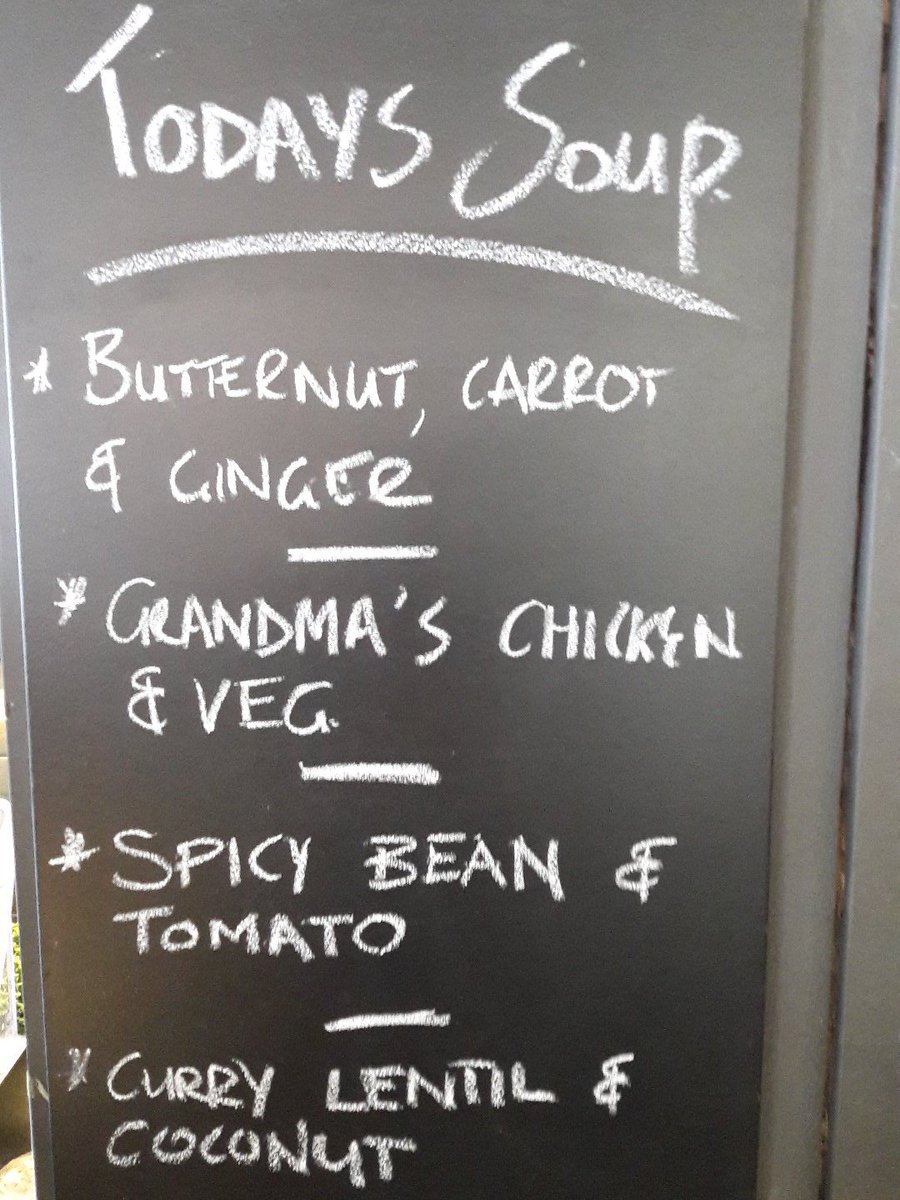 TODAYS SOUP
* BUTTERNUT, CARROT
& GINGER
* GRANDMA'S CHICKEN
& VEG.
* SPICY BEAN &
TOMATO
* CURRY LENTIL &
COCONUT